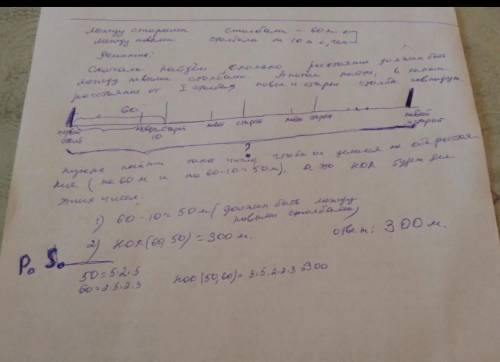 между старыми столбами – 60 м
между новыми столбами на 10 м
Решение:
Сначала найдём сколько расстояние должно быть
между новыми столбами. А потом найти, в каком
расстоянии от I столба новый и старый столб совпадут
60
первый столб новый старый новый старый новый старый новый старый
10
?
нужно найти такое число чтобы оно делилось на оба расстоя
ния (на 60 м и на 60-10=50м), а это НОК будет
этих чисел.
1) 60-10=50м (должно быть между
новыми столбами)
2) НОК(60,50)=300м.
ответ: 300м.
P. S.
50=5·2·5
60=2·5·2·3 НОК(50,60)=5·5·2·2·3=300